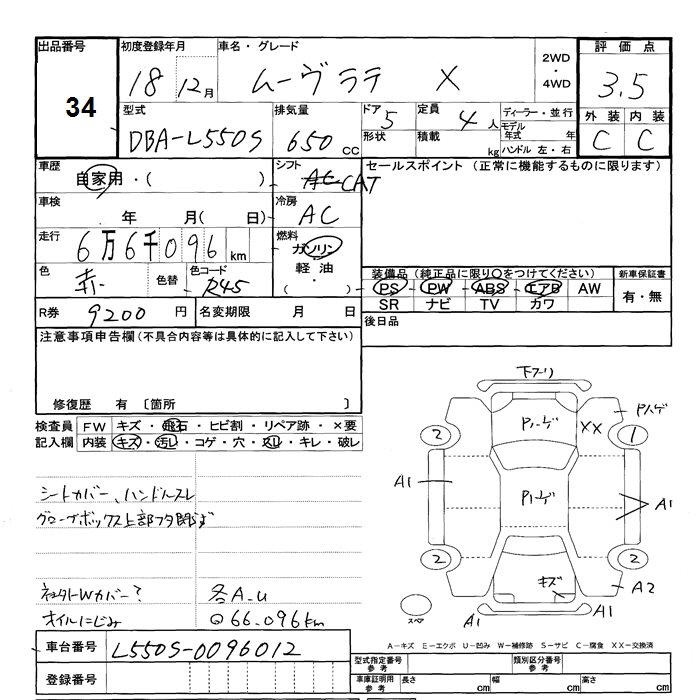 出品番号
34
初度登録年月
18 12月
車名・グレード
ムーヴラテ X
2WD
・
4WD
評価点
3.5
外装 内装
C C
型式
DBA-L550S
排気量
650 cc
ドア 5
形状
定員 4 人
積載 kg
ディーラー・並行
モデル年式 年
ハンドル 左・右
車歴
自家用・( )
シフト
CAT
セールスポイント (正常に機能するものに限ります)
車検
年 月( 日)
冷房
AC
走行
6万6千096 km
燃料
ガソリン
軽油
・
( )
色
赤
色替
色コード
R45
装備品 (純正品に限り○をつけてください)
PS PW ABS エアB AW
SR ナビ TV カワ
新車保証書
有・無
R券 9200円
名変期限 月 日
後日品
注意事項申告欄 (不具合内容等は具体的に記入して下さい)
修復歴 有 〔箇所 〕
検査員記入欄
FW キズ・飛石・ヒビ割・リペア跡・×要
内装 キズ・汚レ・コゲ・穴・スレ・キレ・破レ
シートカバー、ハンドルスレ
グローブボックス上部フタ閉まず
オイルにじみ
各A.U
66.096km
下マワリ
Pハゲ
Pハゲ
XX
Pハゲ
2
1
A1
A1
2
2
キズ
A2
スペア
A1
A1
A－キズ E－エクボ U－凹み W－補修跡 S－サビ C－腐食 XX－交換済
車台番号
L550S-0096012
登録番号
型式指定番号
参考
類別区分番号
参考
車庫証明用
参考
長さ cm
幅 cm
高さ cm